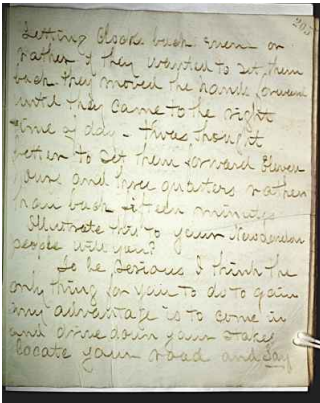 205
Setting Clocks back even or
rather if they wanted to set them
back they moved the hands forward
until they came to the right
time of day - twas thought
better to set them forward Eleven
hours and three quarters rather
than back fifteen minutes
Illustrate this to your New London
people will you?
To be Serious I think the
only thing for you to do to gain
any advantage is to come in
and drive down your stakes
locate your road and Say